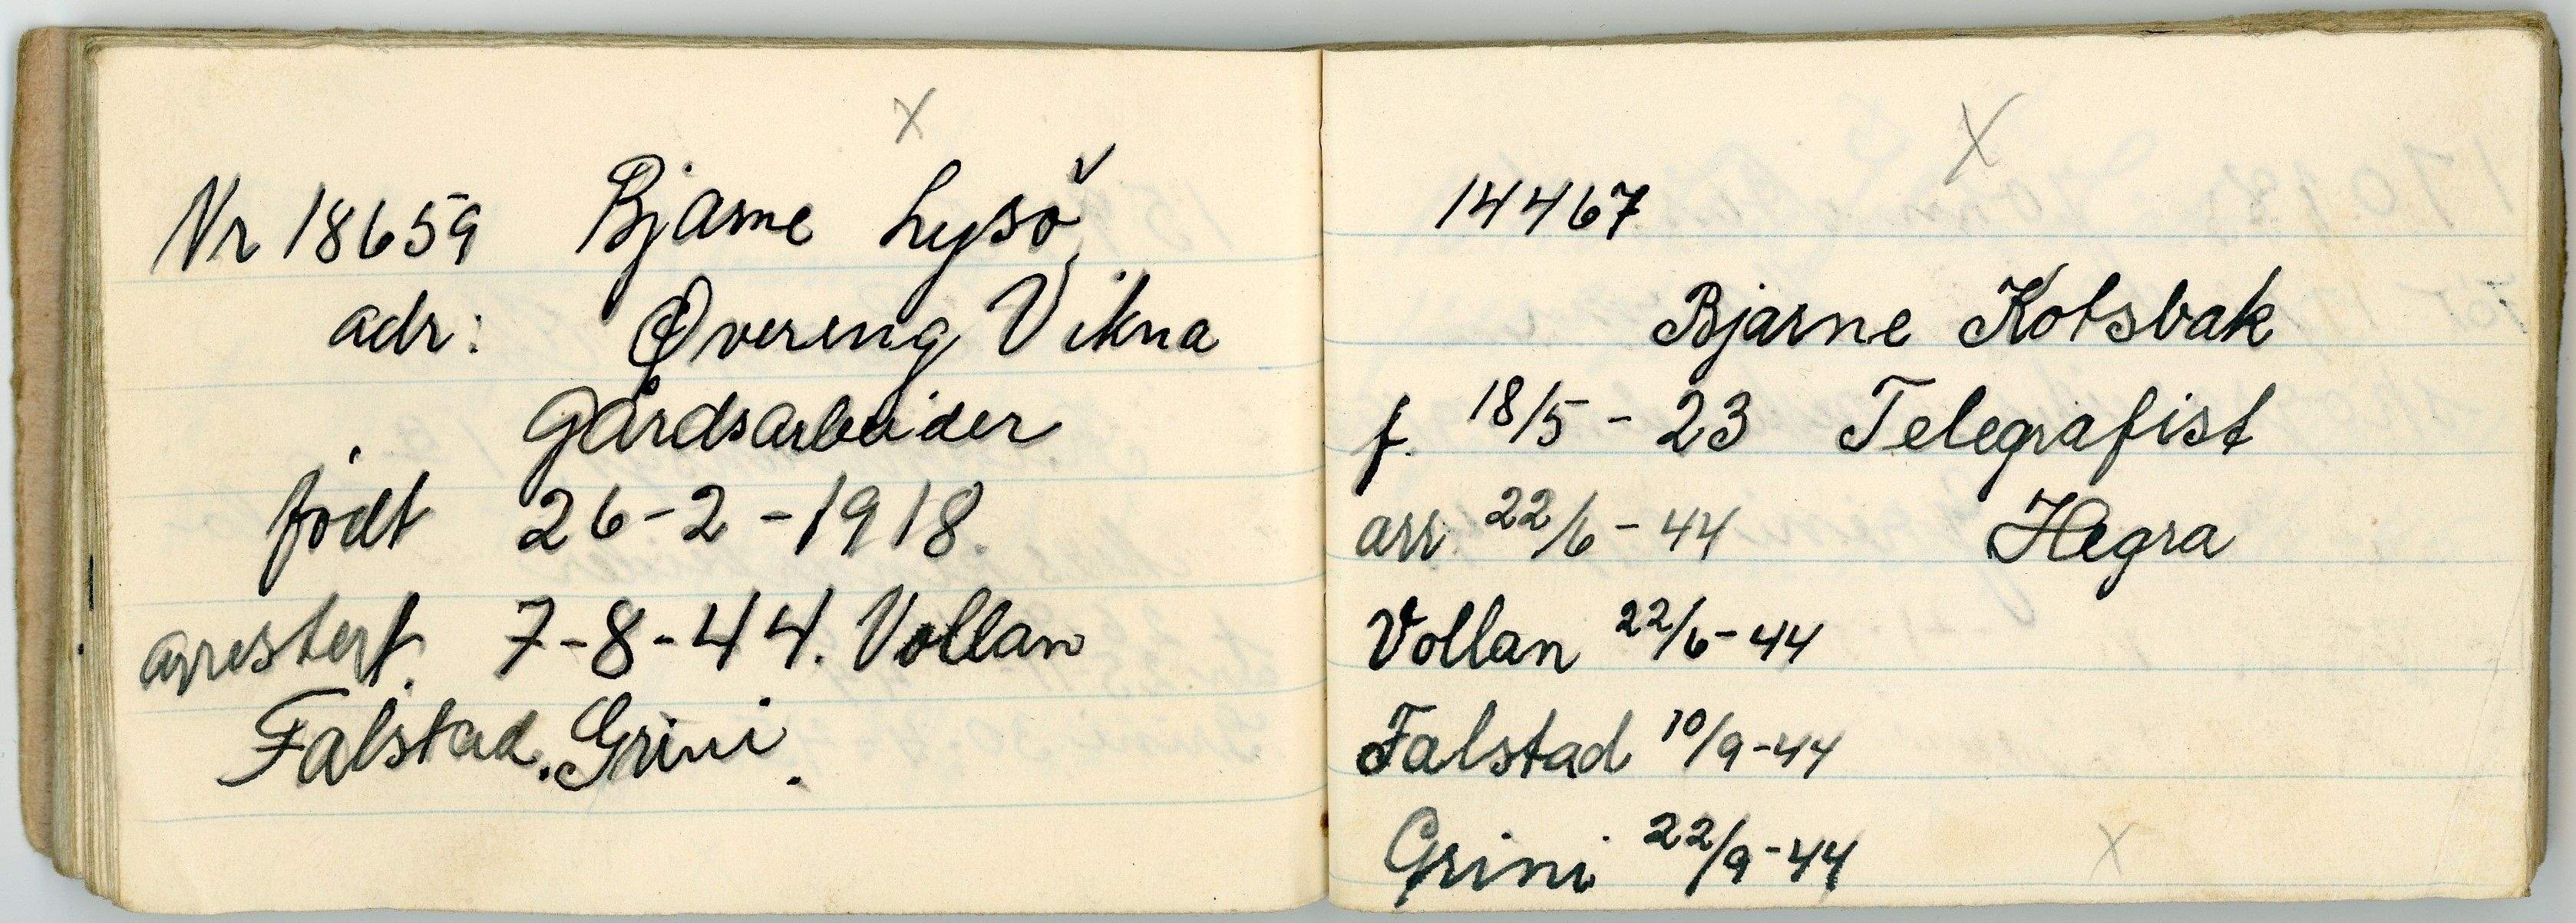 x
Nr 18659 Bjarne Lysö
adr: Øvereng Vikna
Gårdsarbeider
födt 26-2-1918.
arrestert. 7-8-44. Vollan
Falstad. Grini.
X
14467
Bjarne Kotsbak
f. 18/5 - 23 Telegrafist
arr. 22/6 - 44 Hegra
Vollan 22/6-44
Falstad 10/9-44
Grini 22/9-44
x